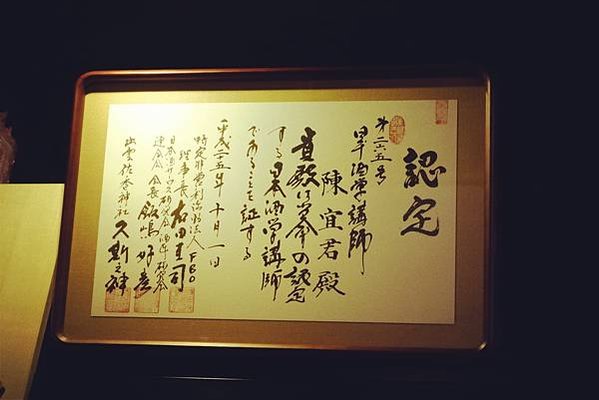 認定
第二六五号
日本酒学講師
陳宜君殿
貴殿は当会の認定
する日本酒学講師
であることを証する
平成二十五年十月一日
特定非営利活動法人FBO
理事長 右田圭司
日本酒サービス研究会・酒匠研究会
連合会 会長 飯嶋好彦
出雲佐香神社 久斯之神